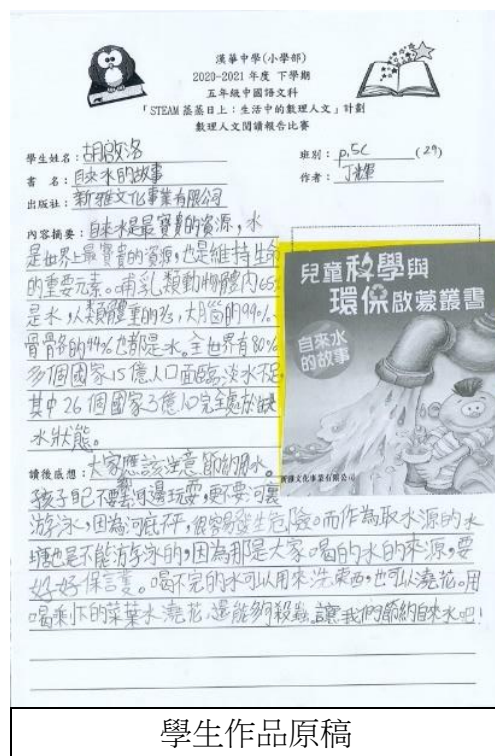 漢華中學(小學部)
2020-2021 年度 下學期
五年級中國語文科
「STEAM 蒸蒸日上:生活中的數理人文」計劃
數理人文閱讀報告比賽
學生姓名:胡啟洛 班別:p.5C (29)
書 名:自來水的故事 作者:丁輝
出版社:新雅文化事業有限公司
內容摘要:自來水是最寶貴的資源,水
是世界上最寶貴的資源,也是維持生命
的重要元素。哺乳類動物體內65%
是水,人類體重的
大腦的99%、
骨骼的44%也都是水。全世界有80%
多個國家15億人口面臨淡水不足,
其中26個國家3億人口完全處於缺
水狀態。
兒童科學與
環保啟蒙叢書
自來水
的故事
新雅文化事業有限公司
讀後感想:大家應該注意節約用水。
孩子
不要
河邊玩耍,更不要
游泳,因為河底不平,很容易發生危險。而作為取水源的水
塘也是不能游泳的,因為那是大家喝的水的來源,要
好好保護。喝不完的水可以用來洗東西,也可以澆花。用
喝剩下的茶葉水澆花,還能夠殺蟲。讓我們節約自來水吧!
學生作品原稿